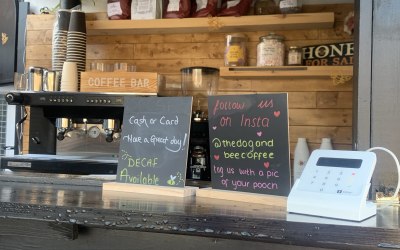 COFFEE BAR
HONEY
FOR SALE
Cash or Card
Have a Great day!
DECAF
Available
follow us
on Insta
@thedogand
beecoffee
tag us with a pic
of your pooch